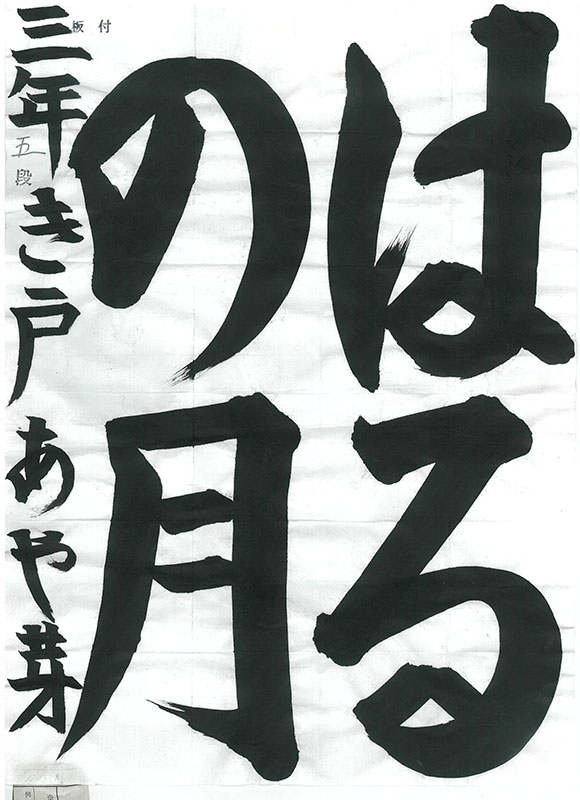 はる
の月
三年き戸あや芽
五段
板付